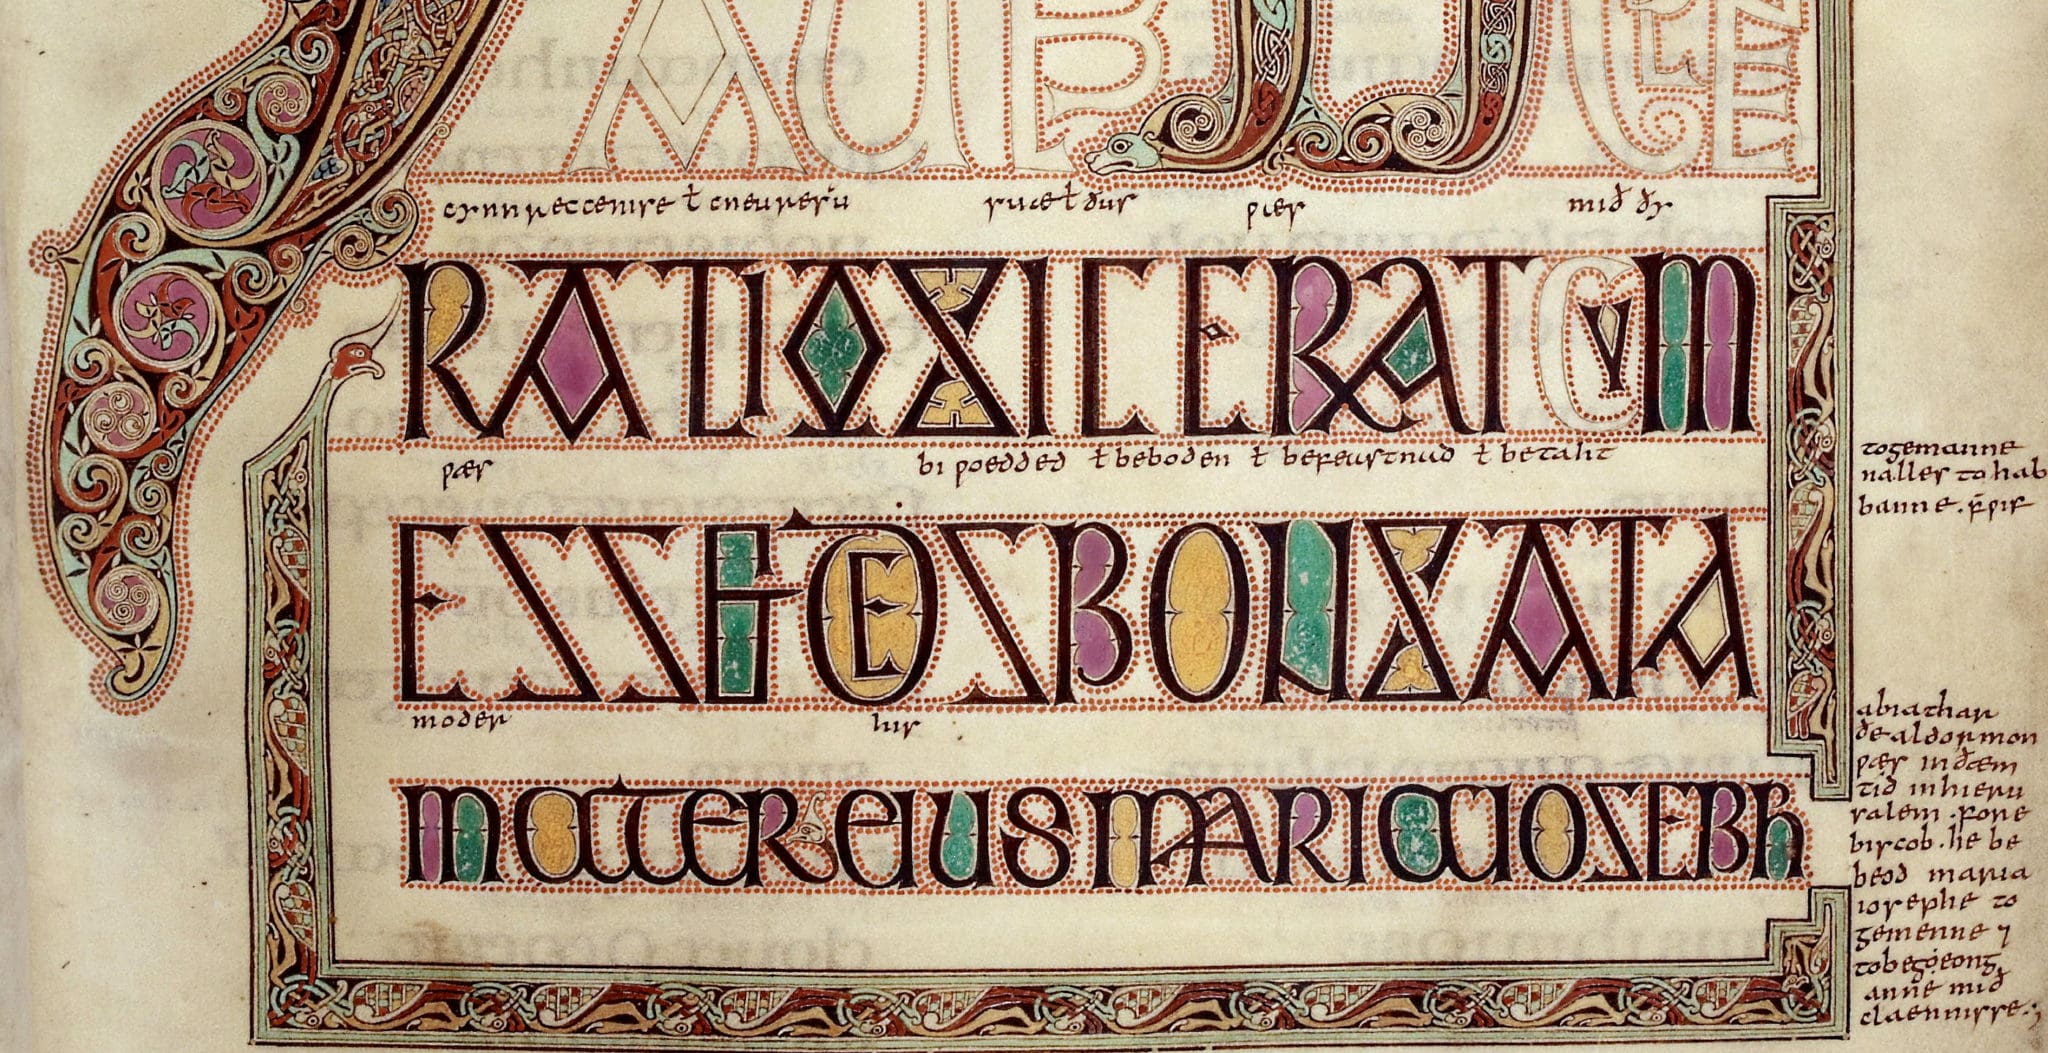 cynnreccenise ł cneuresuu suæ ł ðus wæs mið ðy
RATIO SIC ERAT CUM
wæs bi woedded ł beboden ł befeastnad ł betaht
ESSET DESPONSATA
moder his
MATER EIUS MARIA IOSEBH
to gemanne
nalles to hab
banne.
abiathar
ðe aldormon
wæs in ðæm
tid in hieru
salem. fore
biscob. he be
beod maria
iosephe to
gemenne ⁊
to begeong
anne mið
clænnisse